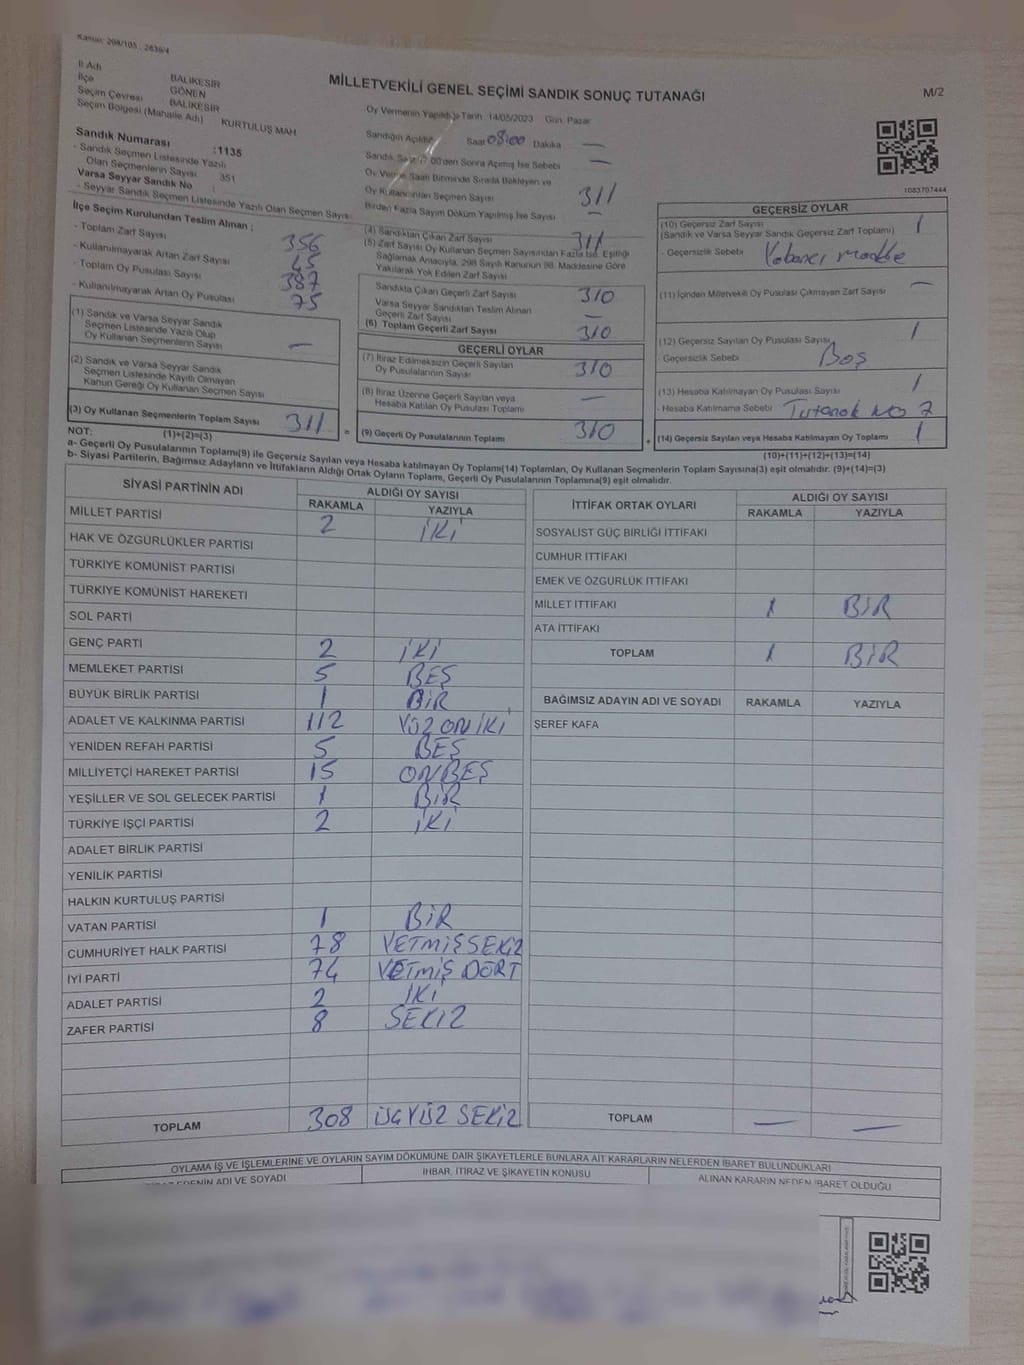 Kanun: 298/105 , 2839/4
İl Adı BALIKESİR
İlçe GÖNEN
Seçim Çevresi BALIKESİR
Seçim Bölgesi (Mahalle Adı) KURTULUŞ MAH
MİLLETVEKİLİ GENEL SEÇİMİ SANDIK SONUÇ TUTANAĞI
M/2
Sandık Numarası :1135
- Sandık Seçmen Listesinde Yazılı
Olan Seçmenlerin Sayısı 351
Varsa Seyyar Sandık No :
- Seyyar Sandık Seçmen Listesinde Yazılı Olan Seçmen Sayısı
Oy Vermenin Yapıldığı Tarih 14/05/2023 Gün: Pazar
Sandığın Açıldığı Saat 08:00 Dakika —
Sandık Saat 00'den Sonra Açılmış İse Sebebi —
Oy Verme Saati Bitiminde Sırada Bekleyen ve
Oy Kullandırılan Seçmen Sayısı 311
Birden Fazla Sayım Döküm Yapılmış İse Sayısı —
1083707444
İlçe Seçim Kurulundan Teslim Alınan ;
- Toplam Zarf Sayısı 356
- Kullanılmayarak Artan Zarf Sayısı 45
- Toplam Oy Pusulası Sayısı 387
- Kullanılmayarak Artan Oy Pusulası 75
(1) Sandık ve Varsa Seyyar Sandık
Seçmen Listesinde Yazılı Olup
Oy Kullanan Seçmenlerin Sayısı —
(2) Sandık ve Varsa Seyyar Sandık
Seçmen Listesinde Kayıtlı Olmayan
Kanun Gereği Oy Kullanan Seçmen Sayısı
(3) Oy Kullanan Seçmenlerin Toplam Sayısı 311 =
(1)+(2)=(3)
(4) Sandıktan Çıkan Zarf Sayısı 311
(5) Zarf Sayısı Oy Kullanan Seçmen Sayısından Fazla İse, Eşitliği
Sağlamak Amacıyla, 298 Sayılı Kanunun 98. Maddesine Göre
Yakılarak Yok Edilen Zarf Sayısı
Sandıkta Çıkan Geçerli Zarf Sayısı 310
Varsa Seyyar Sandıktan Teslim Alınan
Geçerli Zarf Sayısı —
(6) Toplam Geçerli Zarf Sayısı 310
GEÇERLİ OYLAR
(7) İtiraz Edilmeksizin Geçerli Sayılan
Oy Pusulalarının Sayısı 310
(8) İtiraz Üzerine Geçerli Sayılan veya
Hesaba Katılan Oy Pusulası Toplamı —
(9) Geçerli Oy Pusulalarının Toplamı 310 +
GEÇERSİZ OYLAR
(10) Geçersiz Zarf Sayısı
(Sandık ve Varsa Seyyar Sandık Geçersiz Zarf Toplamı) 1
- Geçersizlik Sebebi Yabancı madde
(11) İçinden Milletvekili Oy Pusulası Çıkmayan Zarf Sayısı —
(12) Geçersiz Sayılan Oy Pusulası Sayısı 1
- Geçersizlik Sebebi Boş
(13) Hesaba Katılmayan Oy Pusulası Sayısı 1
- Hesaba Katılmama Sebebi Tutanak No 7
(14) Geçersiz Sayılan veya Hesaba Katılmayan Oy Toplamı 1
(10)+(11)+(12)+(13)=(14)
NOT:
a- Geçerli Oy Pusulalarının Toplamı(9) ile Geçersiz Sayılan veya Hesaba katılmayan Oy Toplamı(14) Toplamları, Oy Kullanan Seçmenlerin Toplam Sayısına(3) eşit olmalıdır. (9)+(14)=(3)
b- Siyasi Partilerin, Bağımsız Adayların ve İttifakların Aldığı Ortak Oyların Toplamı, Geçerli Oy Pusulalarının Toplamına(9) eşit olmalıdır.
SİYASİ PARTİNİN ADI ALDIĞI OY SAYISI
RAKAMLA YAZIYLA
MİLLET PARTİSİ 2 İKİ
HAK VE ÖZGÜRLÜKLER PARTİSİ
TÜRKİYE KOMÜNİST PARTİSİ
TÜRKİYE KOMÜNİST HAREKETİ
SOL PARTİ
GENÇ PARTİ 2 İKİ
MEMLEKET PARTİSİ 5 BEŞ
BÜYÜK BİRLİK PARTİSİ 1 BİR
ADALET VE KALKINMA PARTİSİ 112 YÜZ ON İKİ
YENİDEN REFAH PARTİSİ 5 BEŞ
MİLLİYETÇİ HAREKET PARTİSİ 15 ONBEŞ
YEŞİLLER VE SOL GELECEK PARTİSİ 1 BİR
TÜRKİYE İŞÇİ PARTİSİ 2 İKİ
ADALET BİRLİK PARTİSİ
YENİLİK PARTİSİ
HALKIN KURTULUŞ PARTİSİ
VATAN PARTİSİ 1 BİR
CUMHURİYET HALK PARTİSİ 78 YETMİŞSEKİZ
İYİ PARTİ 74 YETMİŞ DÖRT
ADALET PARTİSİ 2 İKİ
ZAFER PARTİSİ 8 SEKİZ
TOPLAM 308 ÜÇYÜZ SEKİZ
İTTİFAK ORTAK OYLARI ALDIĞI OY SAYISI
RAKAMLA YAZIYLA
SOSYALİST GÜÇ BİRLİĞİ İTTİFAKI
CUMHUR İTTİFAKI
EMEK VE ÖZGÜRLÜK İTTİFAKI
MİLLET İTTİFAKI 1 BİR
ATA İTTİFAKI
TOPLAM 1 BİR
BAĞIMSIZ ADAYIN ADI VE SOYADI RAKAMLA YAZIYLA
ŞEREF KAFA
TOPLAM — —
OYLAMA İŞ VE İŞLEMLERİNE VE OYLARIN SAYIM DÖKÜMÜNE DAİR ŞİKAYETLERLE BUNLARA AİT KARARLARIN NELERDEN İBARET BULUNDUKLARI
EDENİN ADI VE SOYADI İHBAR, İTİRAZ VE ŞİKAYETİN KONUSU ALINAN KARARIN NEDEN İBARET OLDUĞU